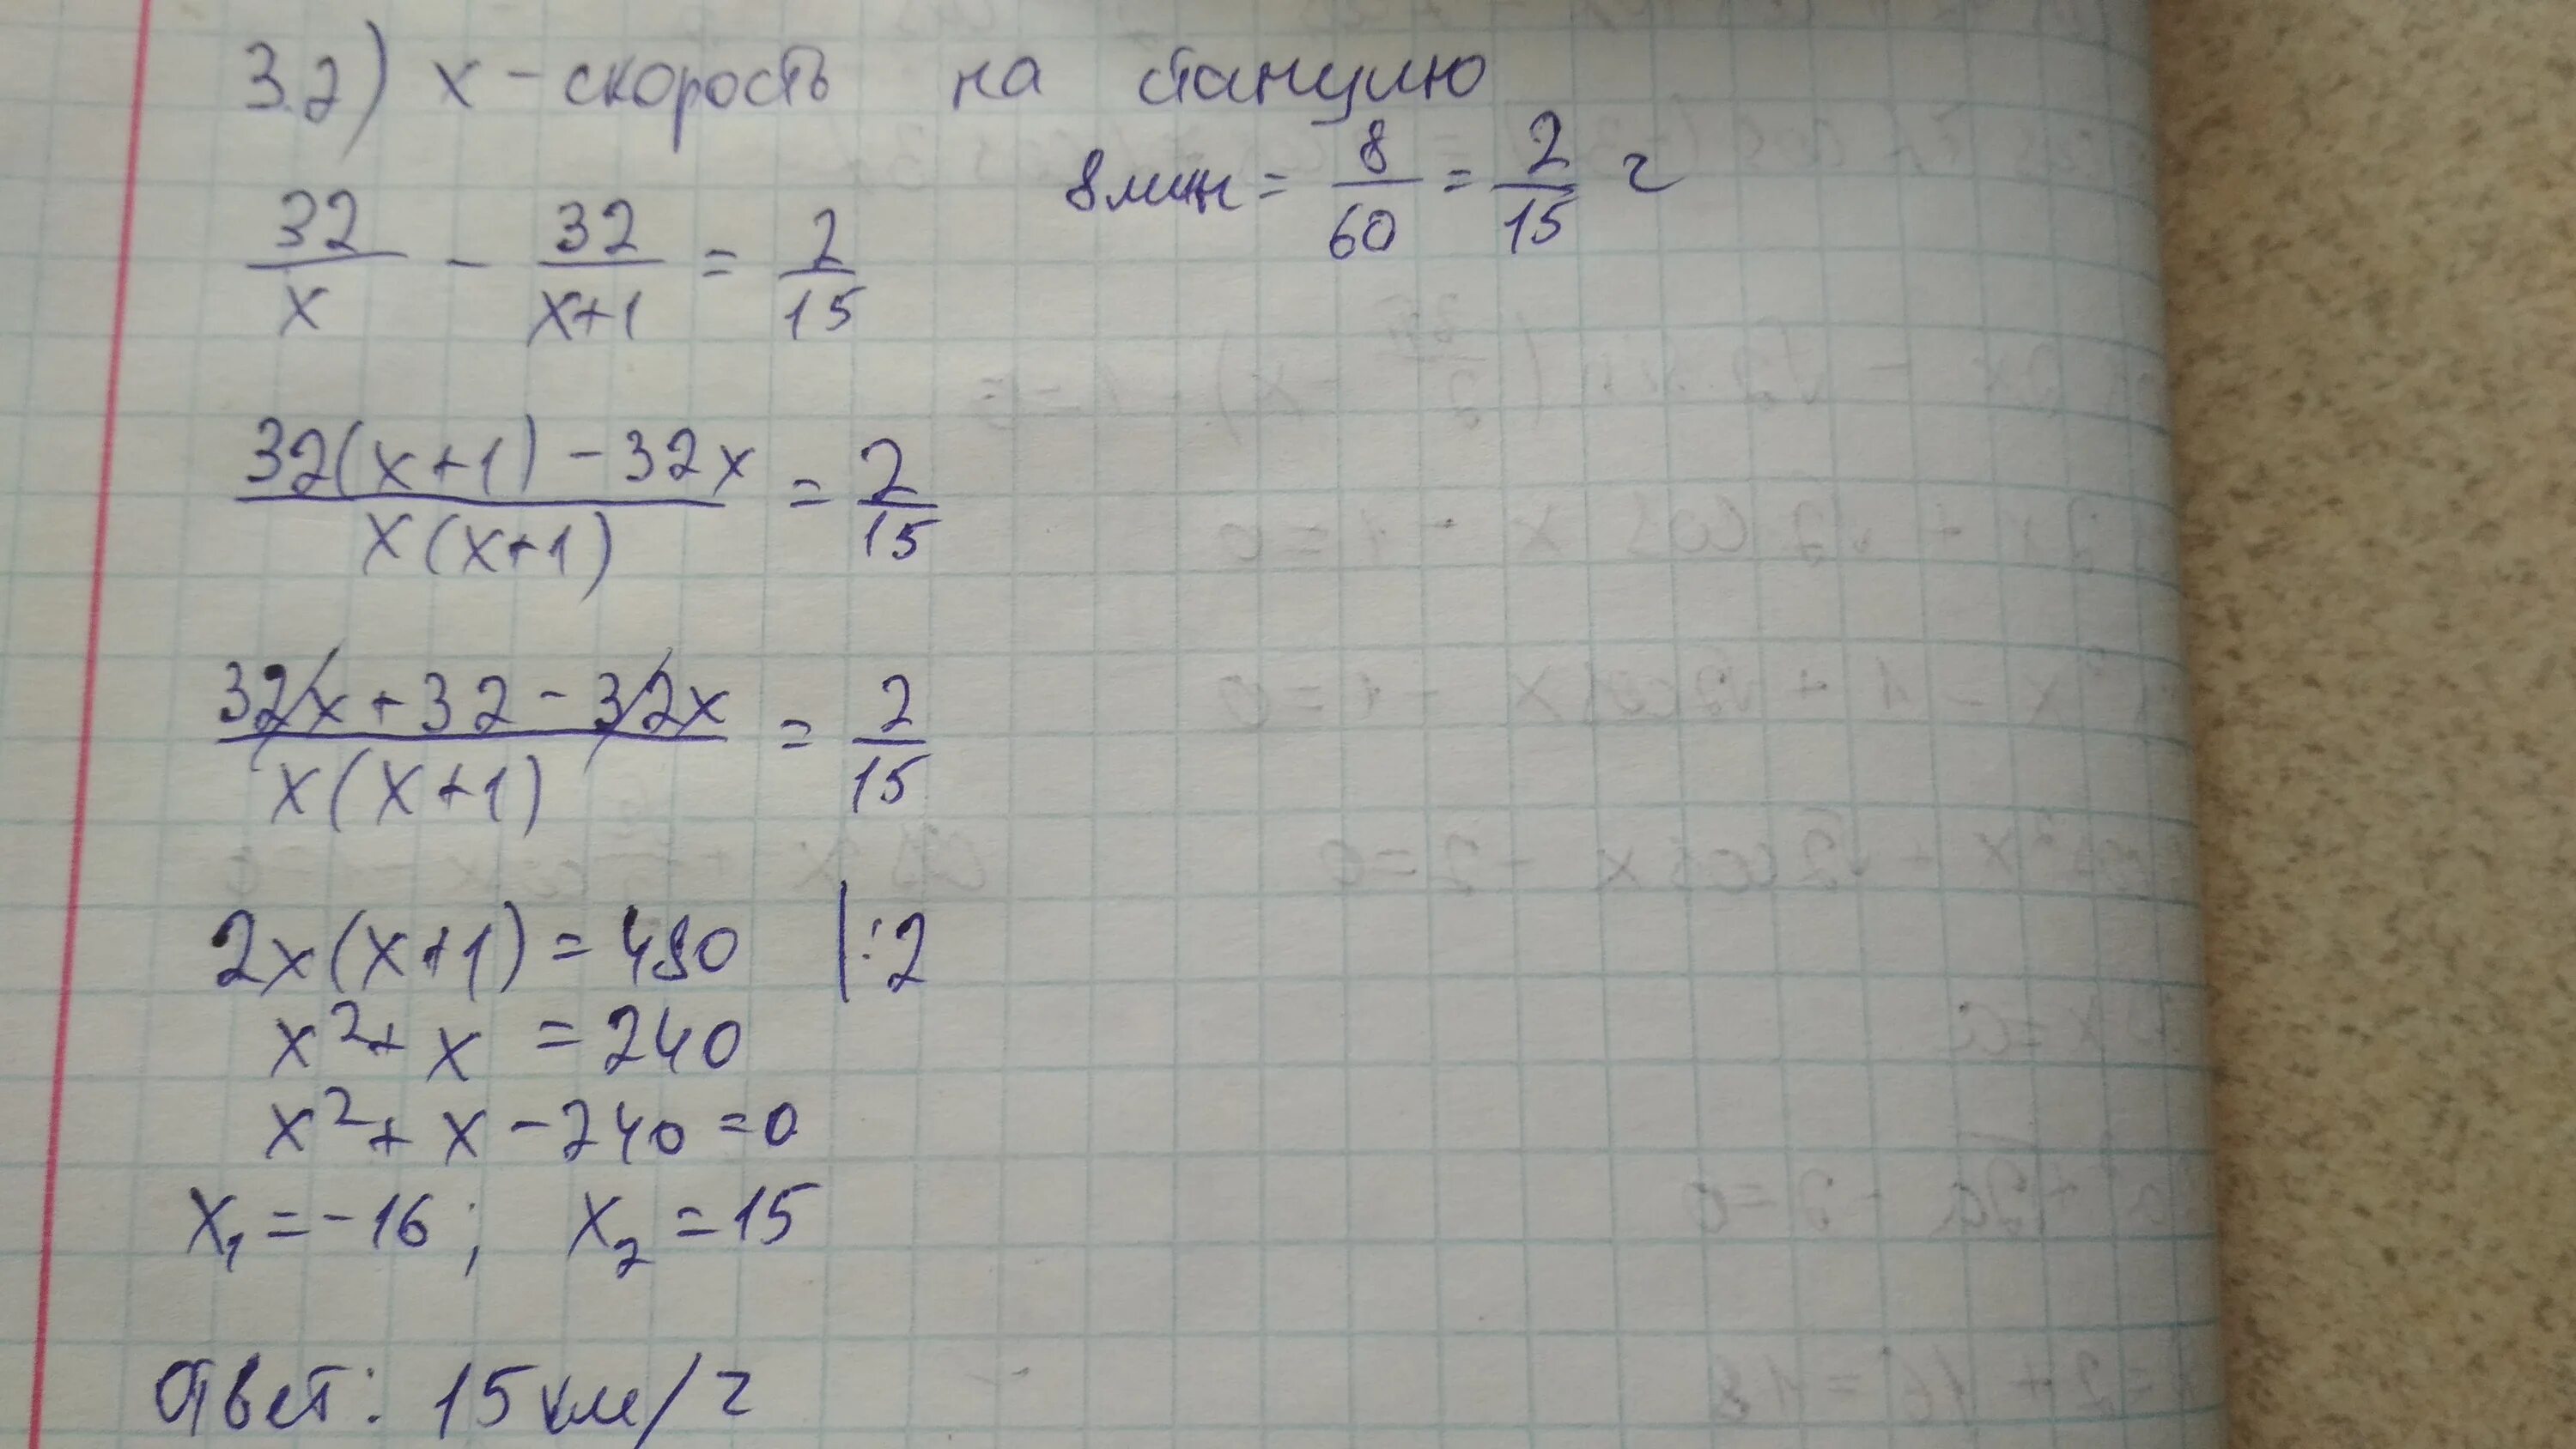 32) x - скорость на станцию
8 мин = 8/60 = 2/15 ч
32/x - 32/(x+1) = 2/15
(32(x+1) - 32x)/(x(x+1)) = 2/15
(32x + 32 - 32x)/(x(x+1)) = 2/15
2x(x+1) = 480 |:2
x² + x = 240
x² + x - 240 = 0
x₁ = -16; x₂ = 15
Ответ: 15 км/ч